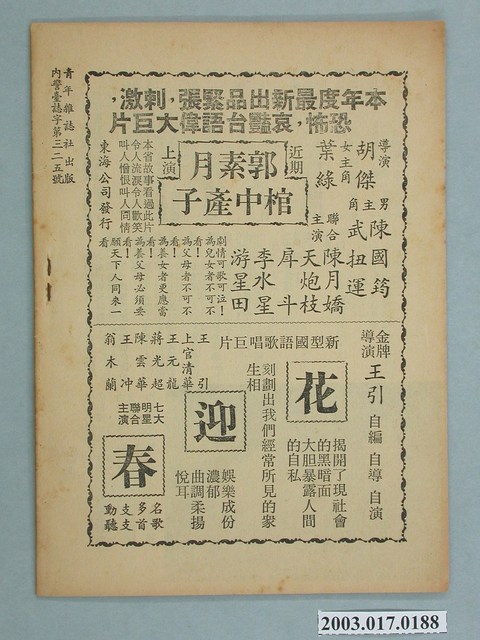 本年度最新出品緊張,刺激,
恐怖,哀豔台語偉大巨片
導演 胡傑
女主角 葉綠
男主角 陳國筠
武扭運
聯合主演
陳月嬌
天炮枝
屏斗
李水星
游星田
近期
郭素月
上演
棺中產子
劇情可歌可泣!
為兒女者不可不看!
為父母者不可不看!
為養女者更應當看!
為養父母必須要看!
願天下人同來一看
本省故事看過此片
令人流淚令人歡笑
叫人憎恨叫人同情
東海公司發行
新型國語歌唱巨片
金牌導演 王引 自編 自導 自演
花
迎
春
揭開了現社會
的黑暗面
大胆暴露人間
的自私
刻劃出我們經常所見的衆
生相
娛樂成份
濃郁
曲調柔揚
悅耳
名歌
多首
支支
動聽
王引
上官清華
王元龍
蔣光超
陳雲華
王冲
翁木蘭
七大明星聯合主演
青年雜誌社出版
內警臺誌字第三二五號
2003.017.0188